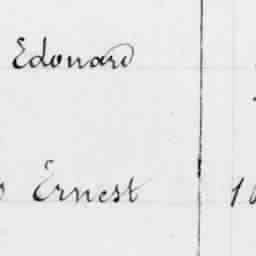 Edouard
Ernest